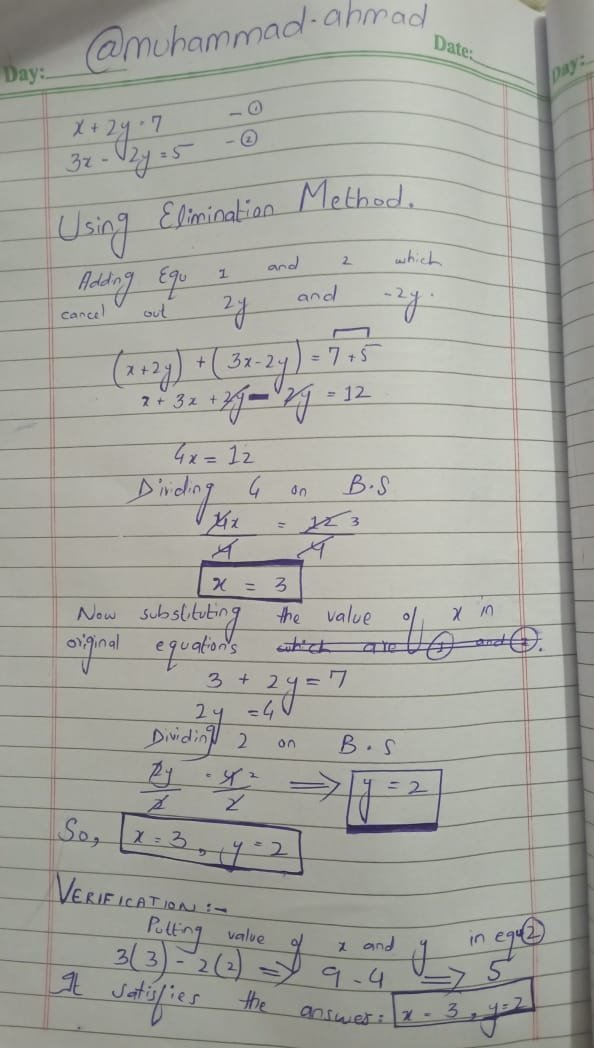 @muhammad-ahmad
Day: Date:
Day:
x + 2y = 7 - ①
3x - 2y = 5 - ②
Using Elimination Method.
Adding Equ 1 and 2 which
cancel out 2y and -2y.
(x+2y) + (3x-2y) = 7+5
x + 3x + 2y - 2y = 12
4x = 12
Dividing 4 on B.S
4x/4 = 12/4 3
x = 3
Now substituting the value of x in
original equations which are ① and ②.
3 + 2y = 7
2y = 4
Dividing 2 on B.S
2y/2 = 4/2 2 ⇒ y = 2
So, x = 3, y = 2
VERIFICATION :-
Putting value of x and y in equ ②
3(3) - 2(2) ⇒ 9 - 4 ⇒ 5
It satisfies the answer: x = 3, y = 2